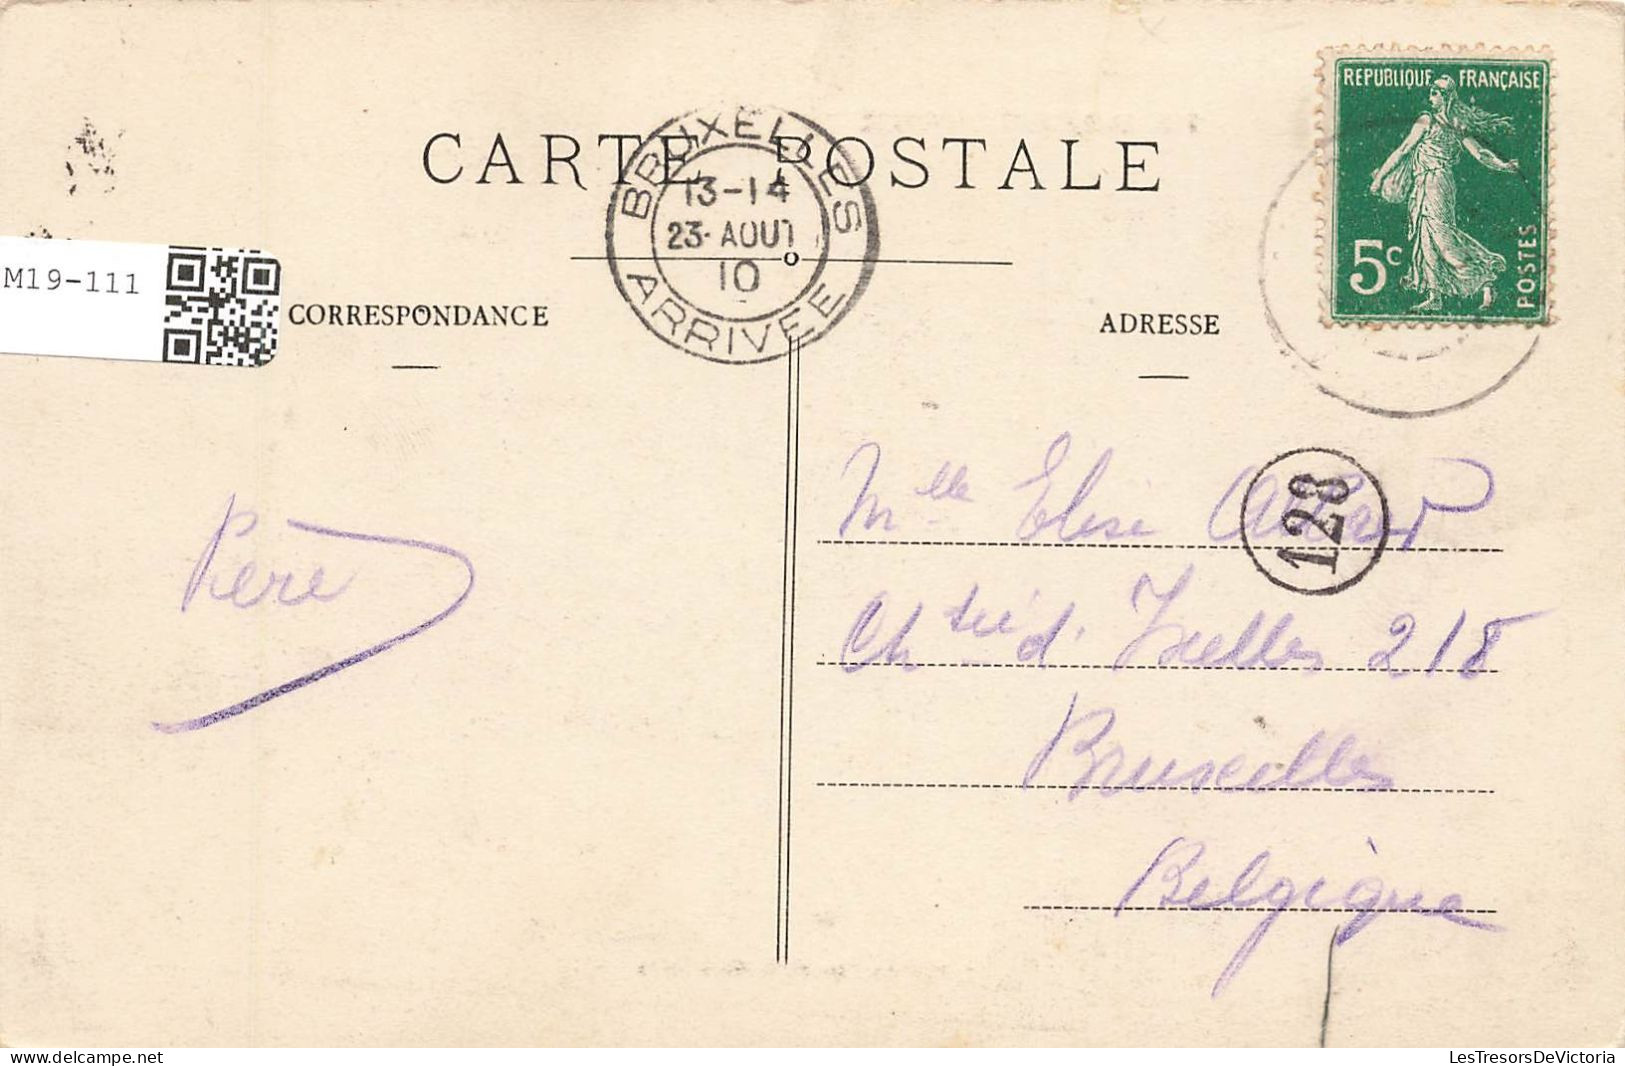 CARTE POSTALE
BRUXELLES
13-14
23· AOUT
10
ARRIVEE
REPUBLIQUE FRANÇAISE
5c
POSTES
M19-111
CORRESPONDANCE
ADRESSE
128
Mlle Elise
Chtéé d' Ixelles 218
Bruxelles
Belgique
delcampe.net
LesTresorsDeVictoria